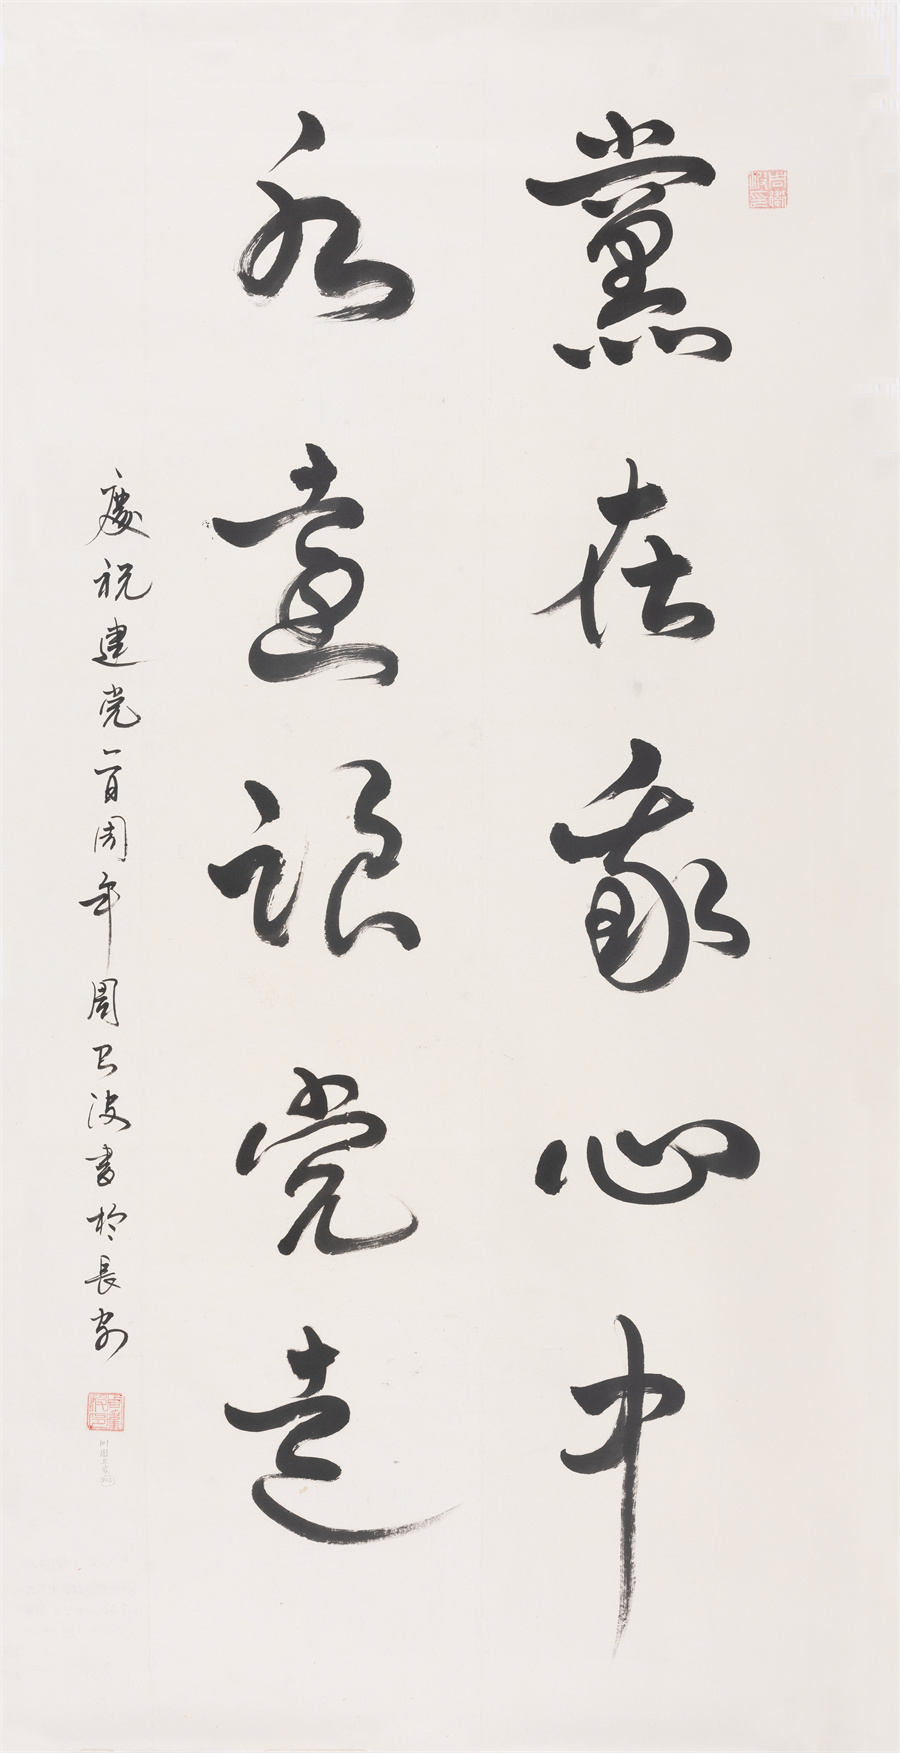 黨在我心中
永遠跟党走
慶祝建党一百周年周波書於長